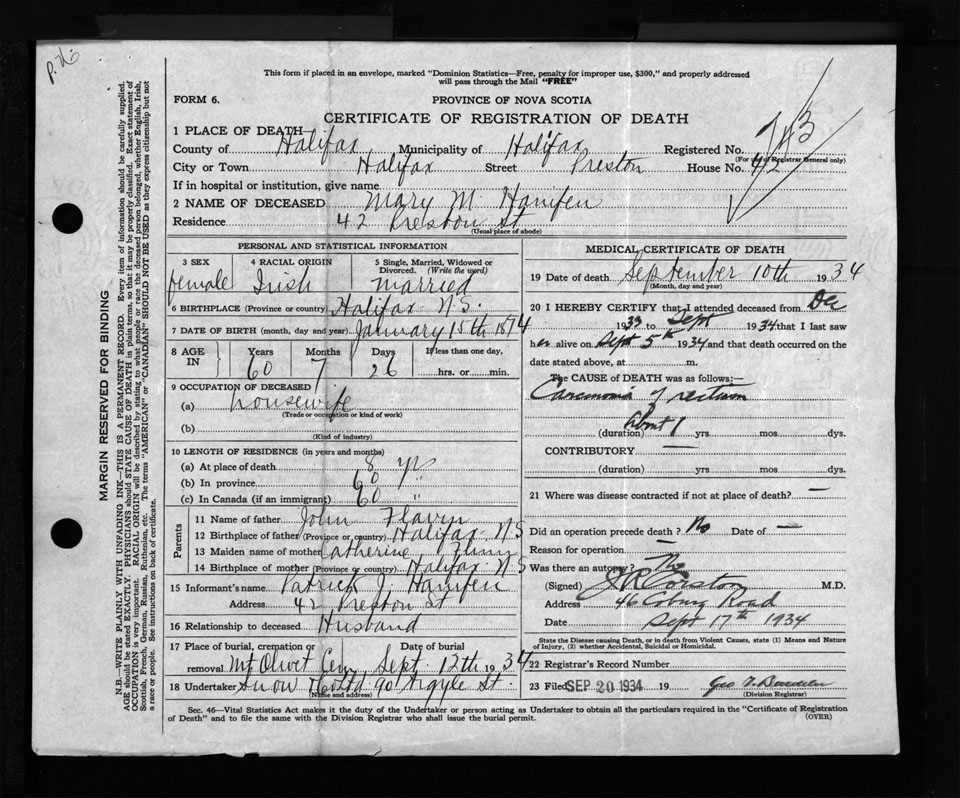 P. 26
This form if placed in an envelope, marked "Dominion Statistics—Free, penalty for improper use, $300," and properly addressed
will pass through the Mail "FREE"
FORM 6.
PROVINCE OF NOVA SCOTIA
CERTIFICATE OF REGISTRATION OF DEATH
743
1 PLACE OF DEATH—
County of Halifax Municipality of Halifax Registered No.
(For use of Registrar General only)
City or Town Halifax Street Preston House No. 42
If in hospital or institution, give name
2 NAME OF DECEASED Mary M. Hanifen
Residence 42 Preston St
(Usual place of abode)
PERSONAL AND STATISTICAL INFORMATION
3 SEX 4 RACIAL ORIGIN 5 Single, Married, Widowed or
Divorced. (Write the word)
female Irish married
6 BIRTHPLACE (Province or country) Halifax N.S.
7 DATE OF BIRTH (month, day and year) January 15th 1874
8 AGE IN Years Months Days If less than one day,
60 7 26 hrs. or min.
9 OCCUPATION OF DECEASED
(a) housewife
(Trade or occupation or kind of work)
(b)
(Kind of industry)
10 LENGTH OF RESIDENCE (in years and months)
(a) At place of death 8 yrs
(b) In province 60 "
(c) In Canada (if an immigrant) 60 "
Parents
11 Name of father John Flavin
12 Birthplace of father (Province or country) Halifax N.S
13 Maiden name of mother Catherine
14 Birthplace of mother (Province or country) Halifax N.S
15 Informant's name Patrick J. Hanifen
Address 42 Preston St
16 Relationship to deceased Husband
17 Place of burial, cremation or Date of burial
removal Mt Olivet Cem Sept. 12th 1934
18 Undertaker Snow Co Ltd 90 Argyle St.
(Name and address)
MEDICAL CERTIFICATE OF DEATH
19 Date of death September 10th 1934
(Month, day and year)
20 I HEREBY CERTIFY that I attended deceased from Dec
1933 to Sept 1934 that I last saw
her alive on Sept 5th 1934 and that death occurred on the
date stated above, at m.
The CAUSE of DEATH was as follows:—
Carcinoma of rectum
(duration) about 1 yrs mos dys.
CONTRIBUTORY —
(duration) yrs mos dys.
21 Where was disease contracted if not at place of death? —
Did an operation precede death? No Date of —
Reason for operation —
Was there an autopsy? No
(Signed) J R Corston M.D.
Address 46 Coburg Road
Date Sept 17th 1934
State the Disease causing Death, or in death from Violent Causes, state (1) Means and Nature
of Injury, (2) whether Accidental, Suicidal or Homicidal.
22 Registrar's Record Number
23 Filed SEP 20 1934 19 Geo
(Division Registrar)
Sec. 46—Vital Statistics Act makes it the duty of the Undertaker or person acting as Undertaker to obtain all the particulars required in the "Certificate of Registration
of Death" and to file the same with the Division Registrar who shall issue the burial permit. (OVER)
MARGIN RESERVED FOR BINDING
N.B.—WRITE PLAINLY WITH UNFADING INK—THIS IS A PERMANENT RECORD. Every item of information should be carefully supplied.
AGE should be stated EXACTLY. PHYSICIANS should STATE CAUSE OF DEATH in plain terms, so that it may be properly classified. Exact statement of
OCCUPATION is very important. RACIAL ORIGIN will be described by stating to what people or race the deceased person belonged, whether English, Irish,
Scottish, French, German, Russian, Ruthenian, etc. The terms "AMERICAN" or "CANADIAN" SHOULD NOT BE USED as they express citizenship but not
a race or people. See instructions on back of certificate.